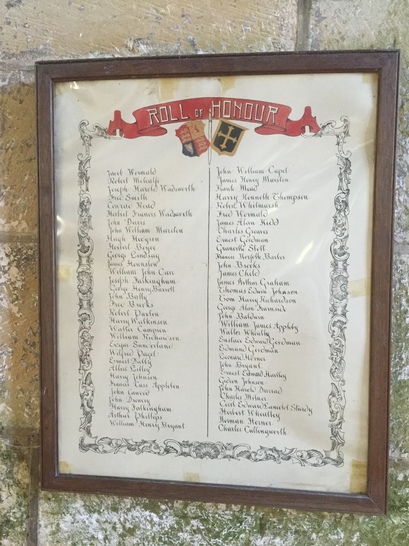 ROLL OF HONOUR
Jacob Wormald
Robert Metcalfe
Joseph Harold Wadsworth
Fred Smith
Herbert Francis Wadsworth
John Davis
John William Marsden
Hugh Hodgson
Herbert Boyes
George Lindlay
James Henshaw
William John Carr
Joseph Falkingham
George Henry Barrett
John Batty
Fred Brooks
Robert Paxton
Harry Watkinson
Walter Campson
William Richardson
Edgar Sunderland
Wilfred Pagel
Ernest Batty
Albert Lilley
Harry Johnson
Isaac Cass Appleton
John Laycock
John Downey
Harry Falkingham
Arthur Phillips
William Henry Bryant
John William Capel
James Henry Marsden
Frank Mead
Harry Kenneth Thompson
Robert Whitmarsh
Fred Wormald
James Alan Kidd
Charles Greaves
Ernest Goodman
Granville Stott
John Brooks
James Child
James Arthur Graham
Thomas Edward Johnson
Tom Harry Richardson
George Alan
John Baldwin
William James Appleby
Walter Wheatley
Edward Goodman
Leonard Horner
John Bryant
Ernest Edward Hartley
Gordon Johnson
John Harold
Charles Milner
Cecil Edward Lancelot Sturdy
Herbert Wheatley
Herman Horner
Charles Cullingworth